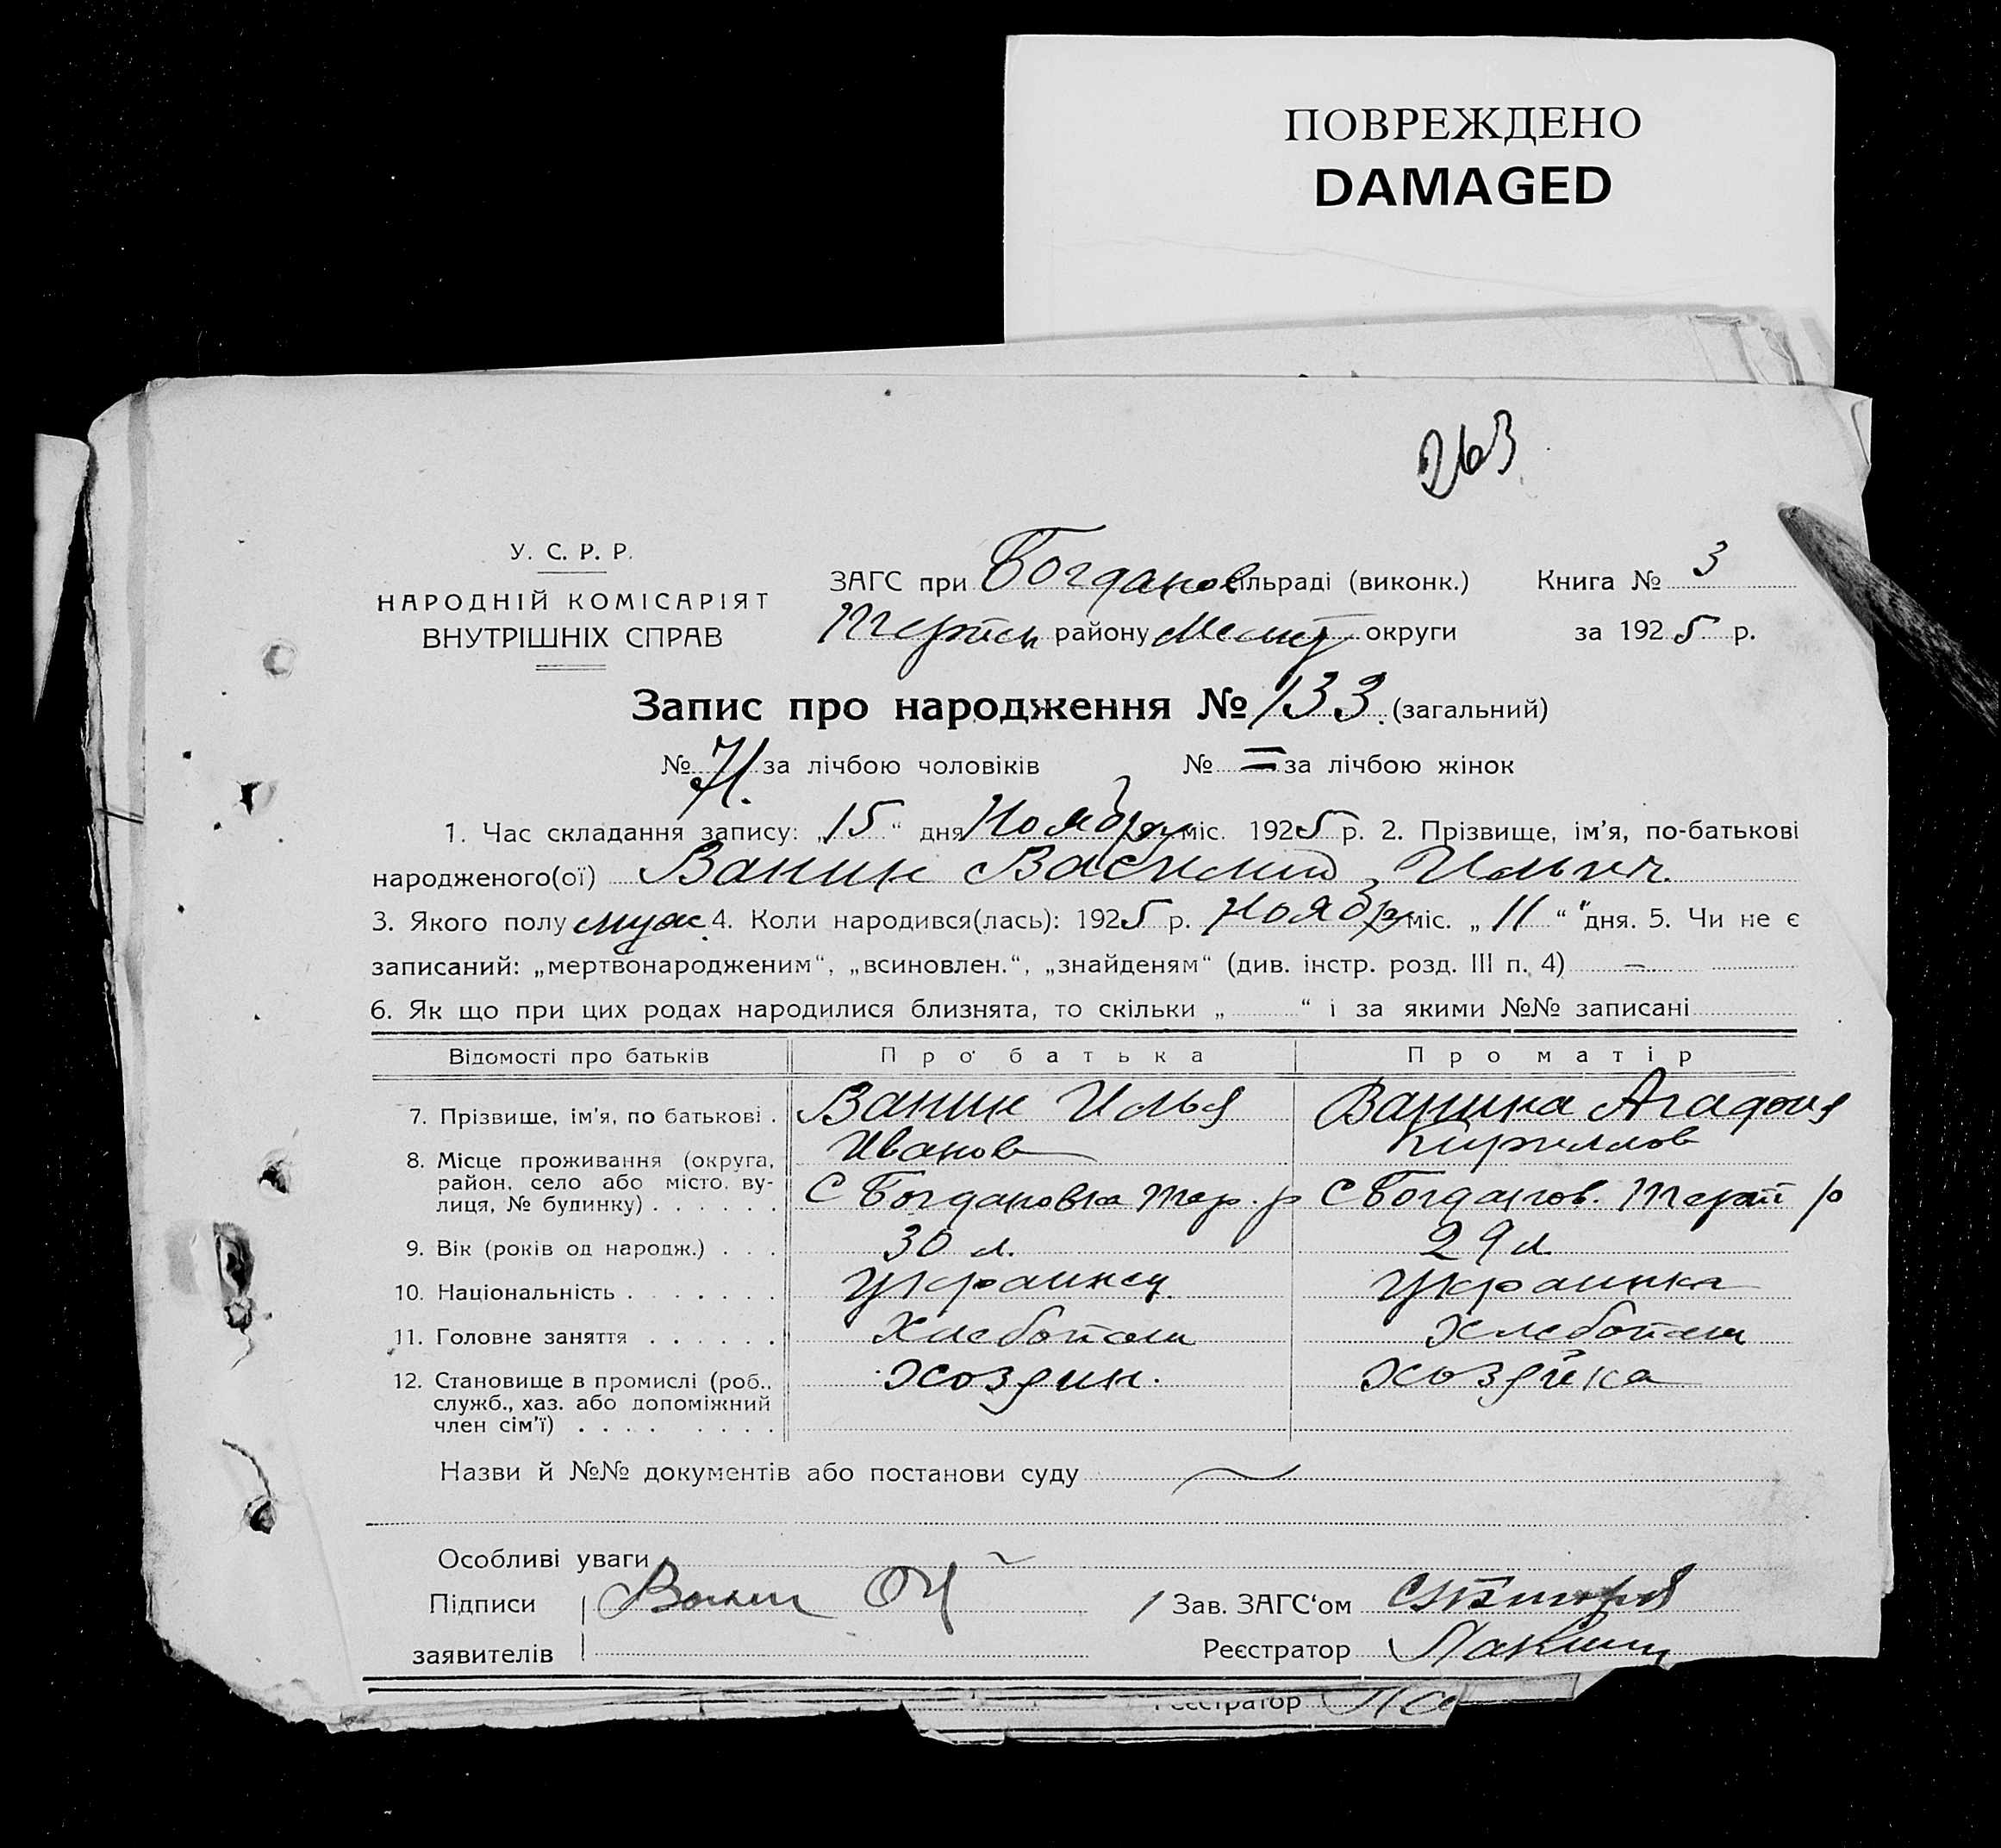 ПОВРЕЖДЕНО
DAMAGED
263
У. С. Р. Р.
НАРОДНІЙ КОМІСАРІЯТ
ВНУТРІШНІХ СПРАВ
ЗАГС при Богданов ільраді (виконк.) Книга № 3
району Мелит округи за 1925 р.
Запис про народження № 133 (загальний)
№ 71. за лічбою чоловіків № = за лічбою жінок
1. Час складання запису: „15“ дня Ноября міс. 1925 р. 2. Прізвище, ім'я, по-батькові
народженого(ої) Ванин Василий Ильич.
3. Якого полу муж. 4. Коли народився(лась): 1925 р. Ноябр міс. „11“ дня. 5. Чи не є
записаний: „мертвонародженим“, „всиновлен.“, „знайденям“ (див. інстр. розд. III п. 4) —
6. Як що при цих родах народилися близнята, то скільки „ “ і за якими №№ записані
Відомості про батьків Про батька Про матір
7. Прізвище, ім'я, по батькові . Ванин Илья Ванина Агафия
Иванов Кириллов
8. Місце проживання (округа, район, село або місто, вулиця, № будинку) . . . . . . С Богдановка Тер. р С Богданов. Терпт р
9. Вік (років од народж.) . . . 30 л. 29 л
10. Національність . . . . . . . Украинец Украинка
11. Головне заняття . . . . . . Хлебопаш Хлебопаш
12. Становище в промислі (роб., служб., хаз. або допоміжний член сім'ї) . . . . . . . . Хозяин. Хозяйка
Назви й №№ документів або постанови суду
Особливі уваги
Підписи Ванин Зав. ЗАГС‘ом
заявителів Реєстратор
Реєстратор